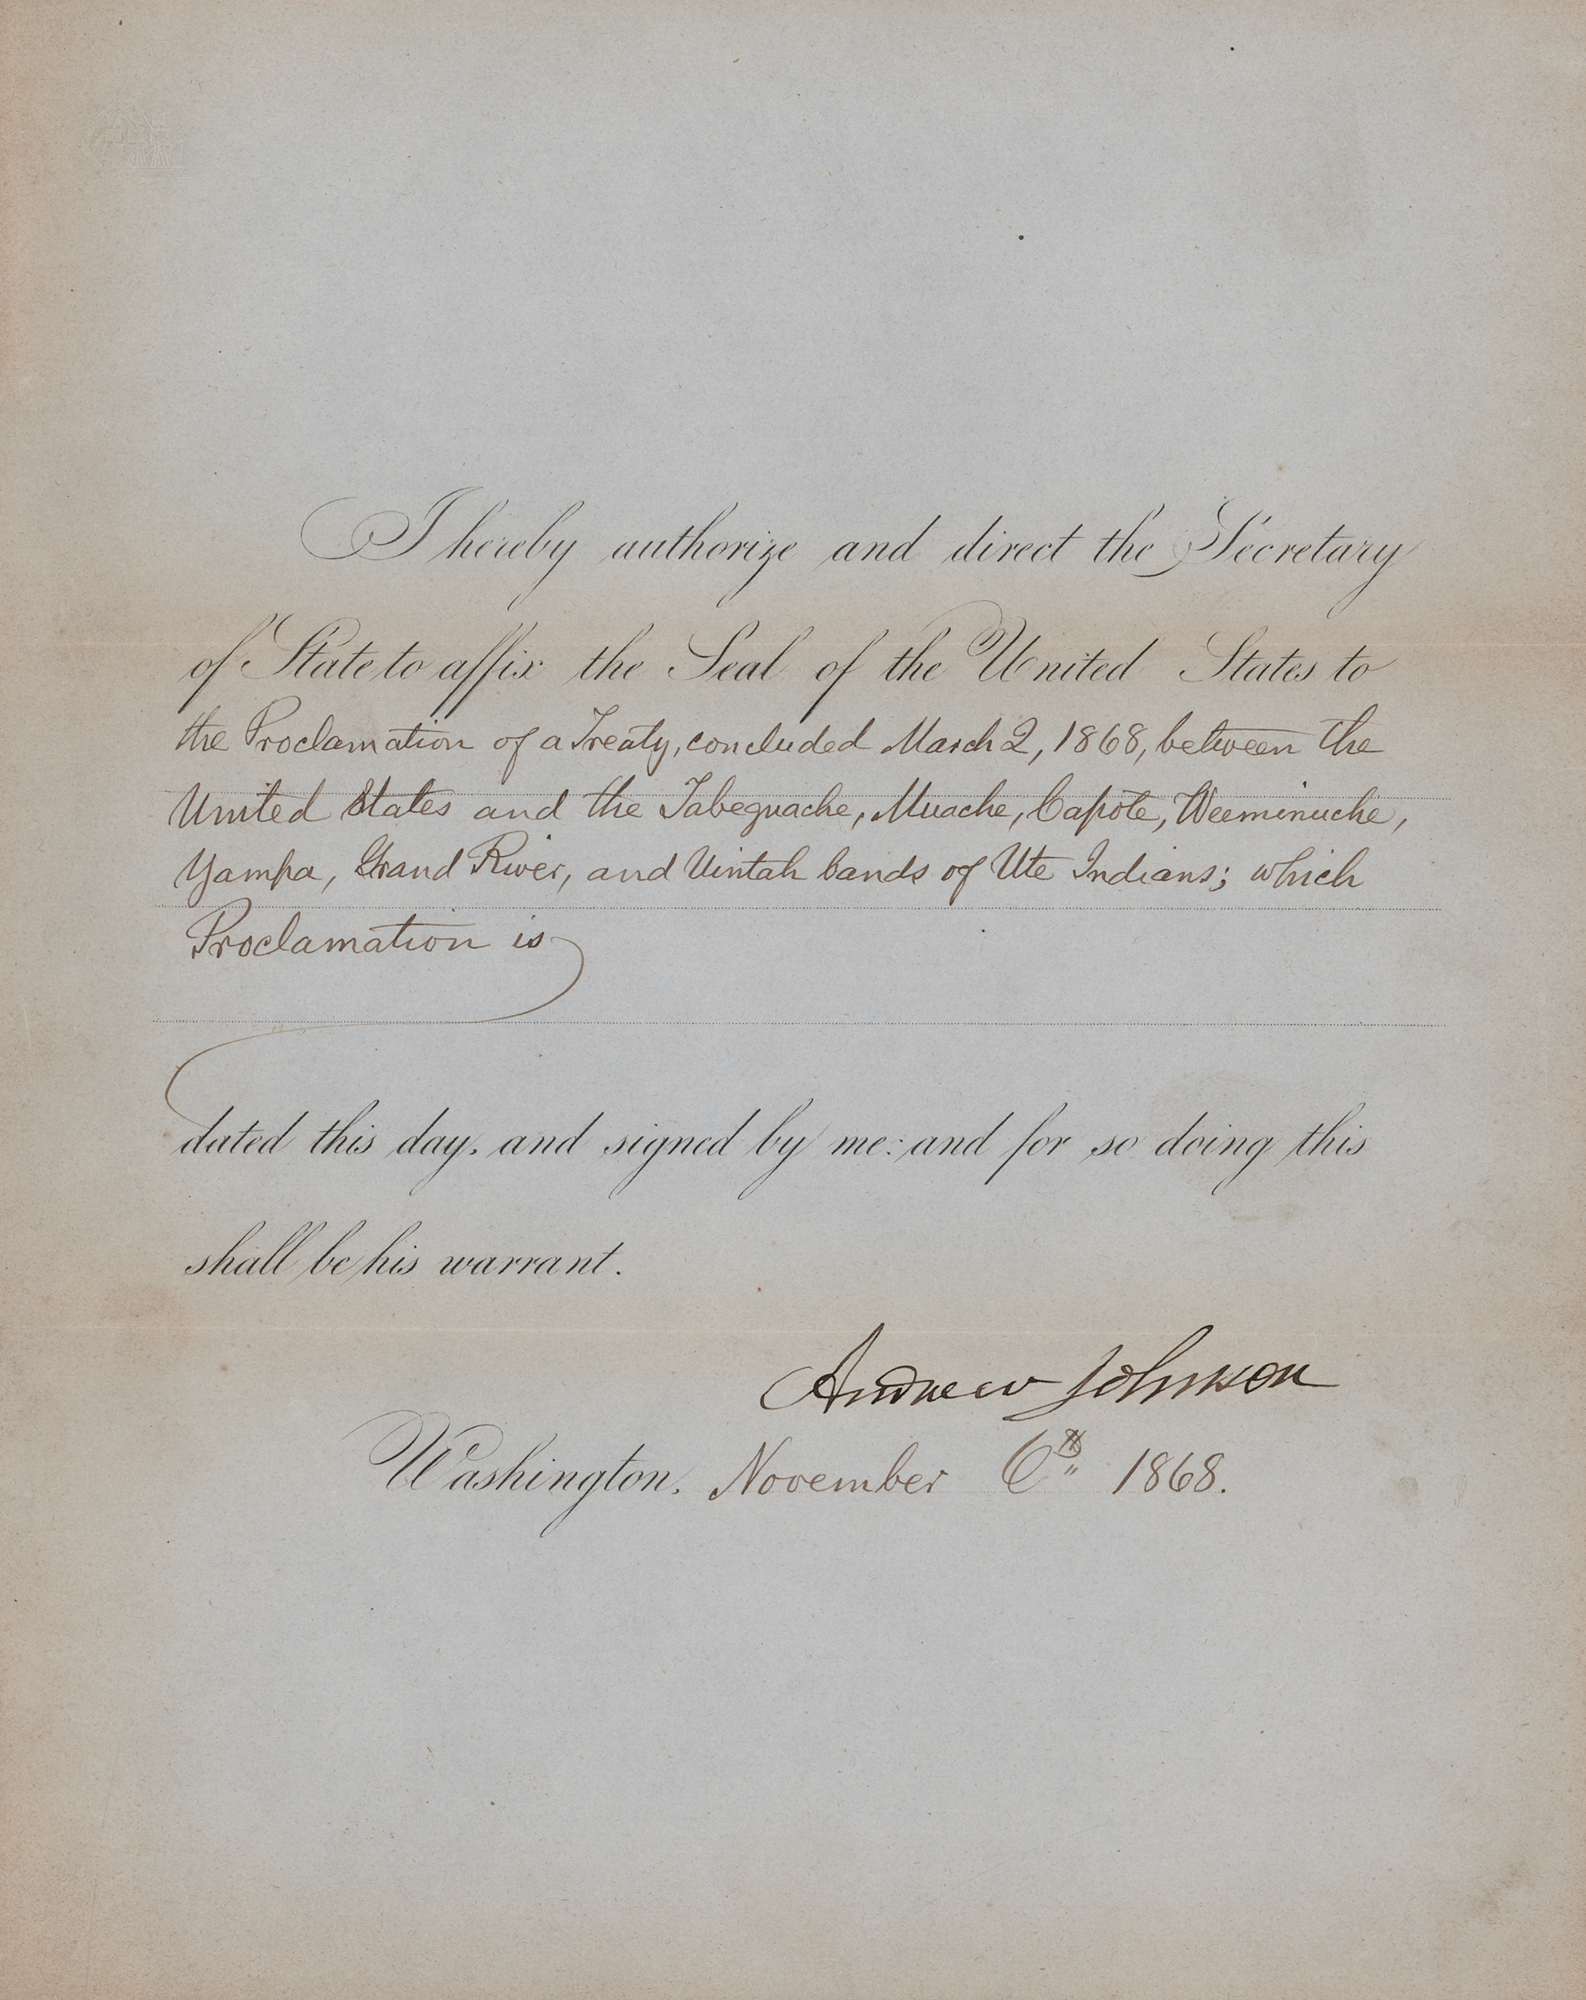 I hereby authorize and direct the Secretary
of State to affix the Seal of the United States to
the Proclamation of a Treaty, concluded March 2, 1868, between the
United States and the Tabeguache, Muache, Capote, Weeminuche,
Yampa, Grand River, and Uintah bands of Ute Indians; which
Proclamation is
dated this day, and signed by me: and for so doing this
shall be his warrant.
Andrew Johnson
Washington, November 6th 1868.